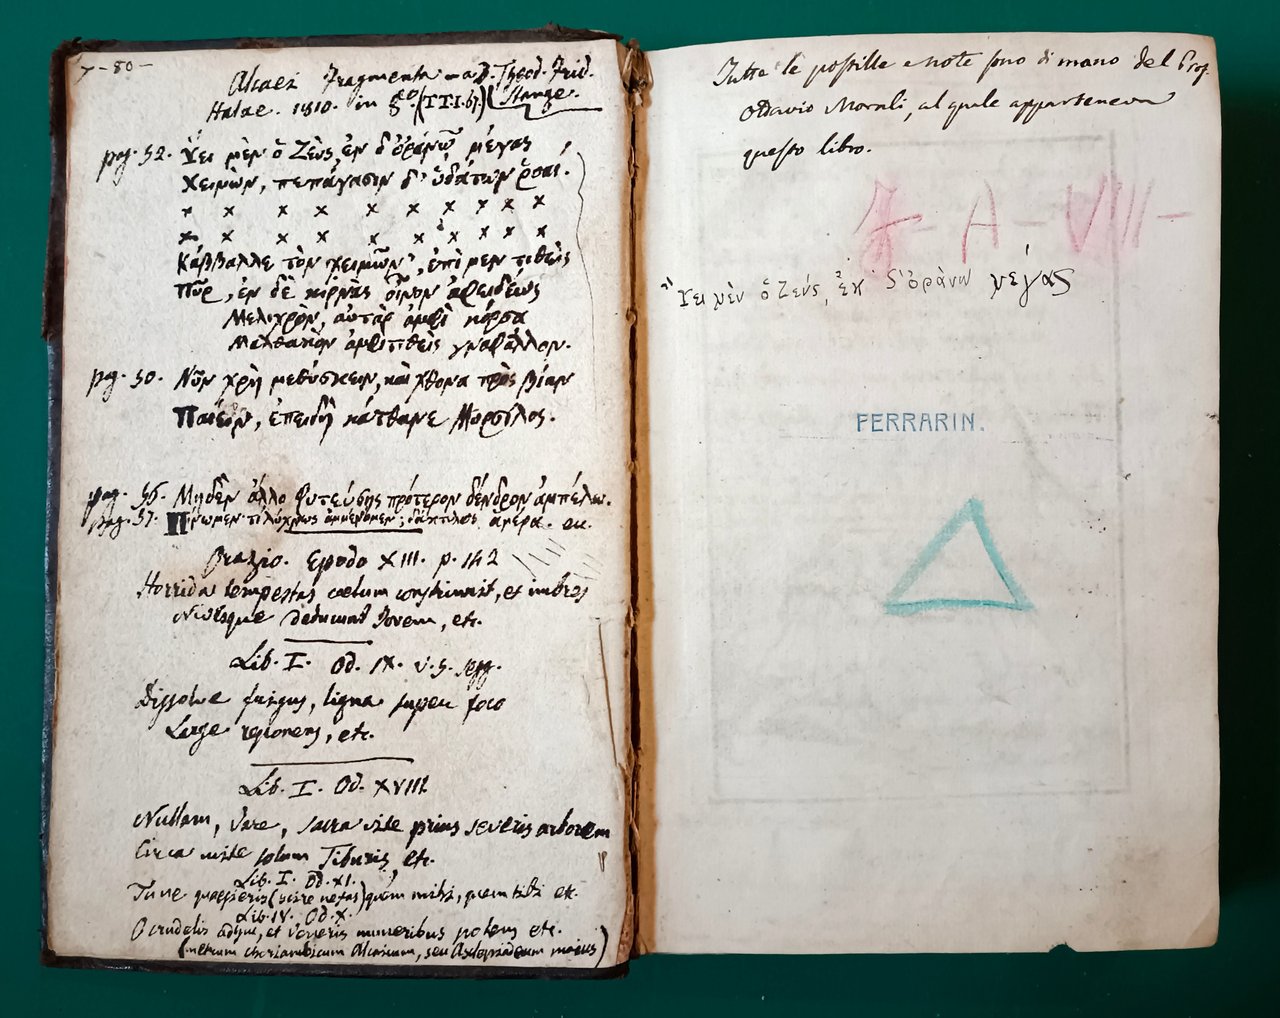 - 80 -
Alcaei Fragmenta a D. Theod. Frid.
Halae. 1810. in 8º (T.T.I.67) Stange.
pg. 52. Ὕει μὲν ὁ Ζεὺς, ἐν δ' ὀράνῳ μέγας
Χειμὼν, πεπάγασιν δ' ὑδάτων ῥοαί.
x x x x x x x x x x
x x x x x x x x x x
Κάββαλλε τὸν χειμῶν', ἐπὶ μὲν τιθεὶς
Πῦρ, ἐν δὲ κίρνας οἶνον ἀφειδέως
Μελιχρὸν, αὐτὰρ ἀμφὶ κόρσᾳ
Μαλθακὸν ἀμφιτιθεὶς γναφάλλον.
pg. 50. Νῦν χρὴ μεθύσκειν, καὶ χθονα πρὸς βίαν
Παίειν, ἐπειδὴ κάτθανε Μύρσιλος.
pag. 36. Μηδὲν ἄλλο φυτεύσῃς πρότερον δένδρον ἀμπέλω.
pag. 37. Πίνωμεν· τί λύχνως ἀμμένομεν; δάκτυλος ἀμέρα. ec.
Orazio. Epodo XIII. p. 142
Horrida tempestas coelum contraxit, et imbres
Nivesque deducunt Jovem, etc.
Lib. I. Od. IX. v. 5. segg.
Dissolve frigus, ligna super foco
Large reponens, etc.
Lib. I. Od. XVIII
Nullam, Vare, sacra vite prius severis arborem
Circa mite solum Tiburis etc.
Lib. I. Od. XI.
Tu ne quaesieris (scire nefas) quem mihi, quem tibi etc.
Lib. IV. Od. X.
O crudelis adhuc, et Veneris muneribus potens etc.
(metrum choriambicum Alcaicum, seu Asclepiadeum maius)
Tutte le postille e note sono di mano del Prof.
Ottavio Morali, al quale apparteneva
questo libro.
A - VIII -
Ὕει μὲν ὁ Ζεύς, ἐκ δ' ὀράνω μέγας
FERRARIN.